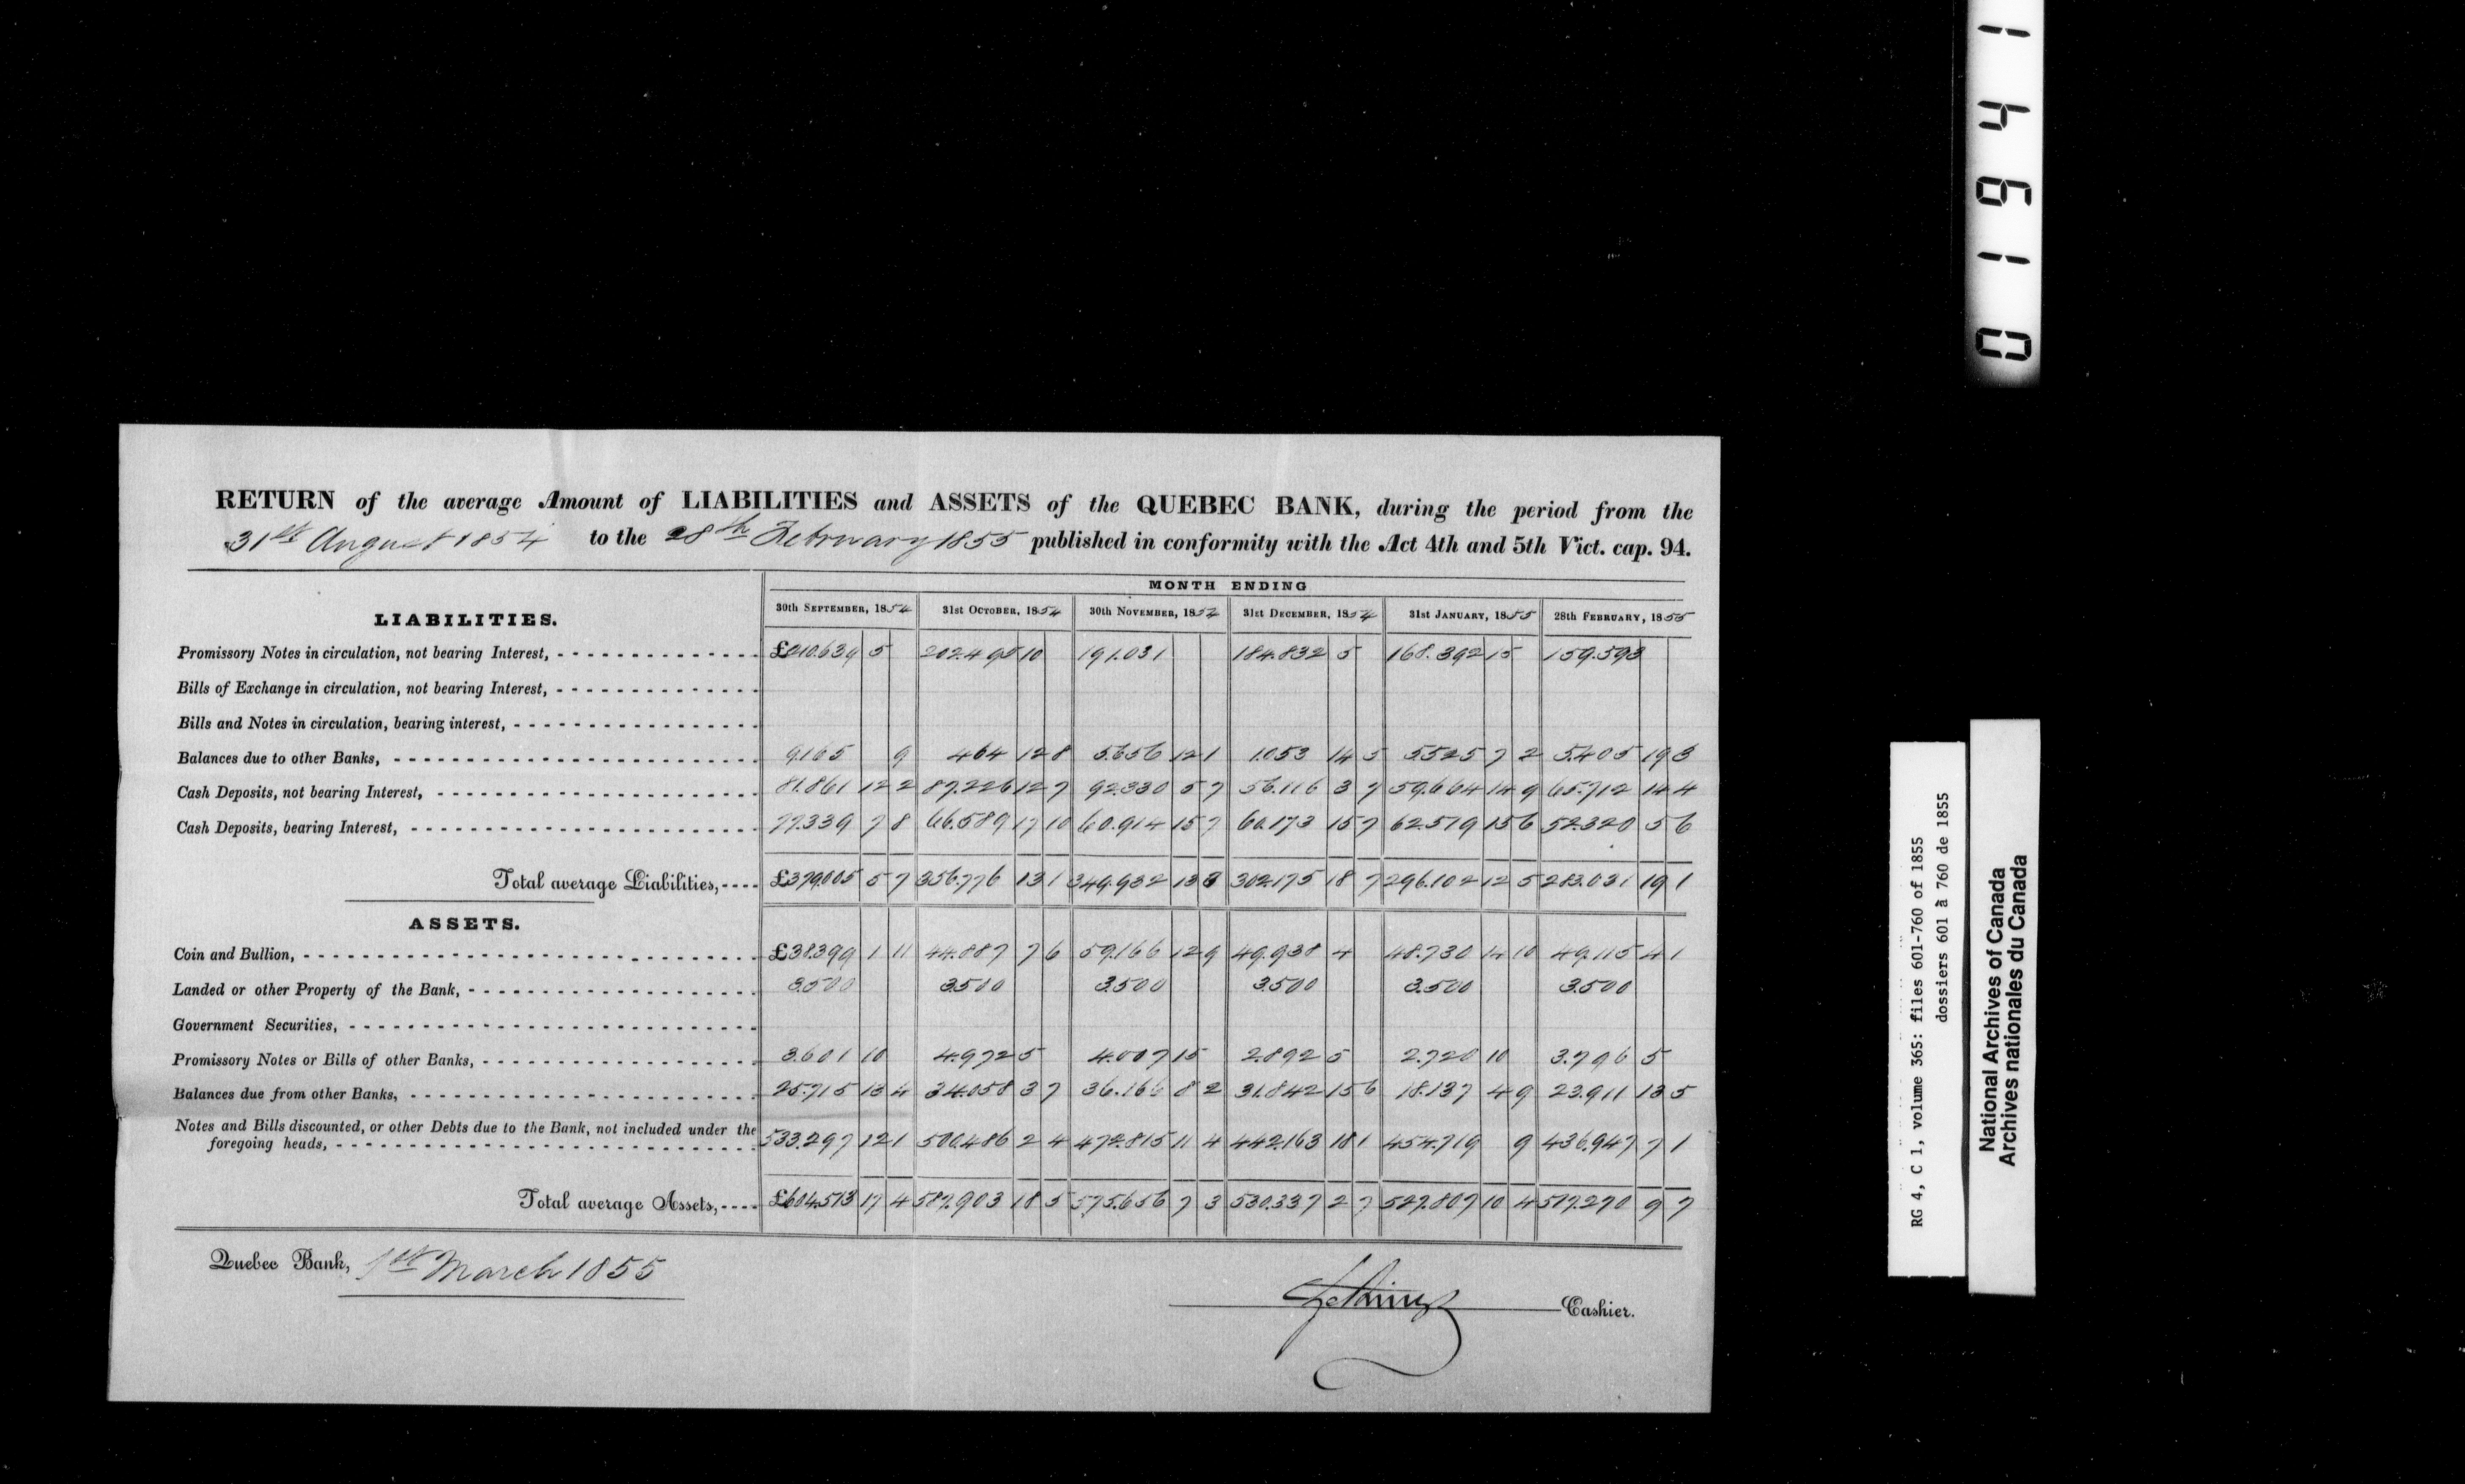 RETURN of the average Amount of LIABILITIES and ASSETS of the QUEBEC BANK, during the period from the
31st August 1854 to the 28th February 1855 published in conformity with the Act 4th and 5th Vict. cap. 94.
MONTH ENDING
LIABILITIES. 30th SEPTEMBER, 1854 31st OCTOBER, 1854 30th NOVEMBER, 1854 31st DECEMBER, 1854 31st JANUARY, 1855 28th FEBRUARY, 1855
Promissory Notes in circulation, not bearing Interest, £210.639 5 202.495 10 191.031 184.832 5 168.392 15 159.593
Bills of Exchange in circulation, not bearing Interest,
Bills and Notes in circulation, bearing interest,
Balances due to other Banks, 9.165 9 464 12 8 5.656 12 1 1.053 14 5 5.525 7 2 5.405 19 3
Cash Deposits, not bearing Interest, 81.861 12 2 87.226 12 7 92.330 5 7 56.116 3 7 59.664 14 9 65.712 14 4
Cash Deposits, bearing Interest, 77.339 7 8 66.589 17 10 60.914 15 7 60.173 15 7 62.519 15 6 52.320 5 6
Total average Liabilities, £379.005 5 7 356.776 13 1 349.932 13 3 302.175 18 7 296.102 12 5 283.031 19 1
ASSETS.
Coin and Bullion, £38.399 1 11 44.887 7 6 59.166 12 9 49.938 4 48.730 14 10 49.115 4 1
Landed or other Property of the Bank, 3.500 3.500 3.500 3.500 3.500 3.500
Government Securities,
Promissory Notes or Bills of other Banks, 3.601 10 4.972 5 4.007 15 2.892 5 2.720 10 3.796 5
Balances due from other Banks, 25.715 13 4 34.058 3 7 36.166 8 2 31.842 15 6 18.137 4 9 23.911 13 5
Notes and Bills discounted, or other Debts due to the Bank, not included under the
foregoing heads, 533.297 12 1 500.486 2 4 472.815 11 4 442.163 18 1 454.719 9 436.947 7 1
Total average Assets, £604.513 17 4 587.903 18 5 575.656 7 3 530.337 2 7 527.807 10 4 517.270 9 7
Quebec Bank, 1st March 1855
Cashier.
01941
RG 4, C 1, volume 365: files 601-760 of 1855
dossiers 601 à 760 de 1855
National Archives of Canada
Archives nationales du Canada